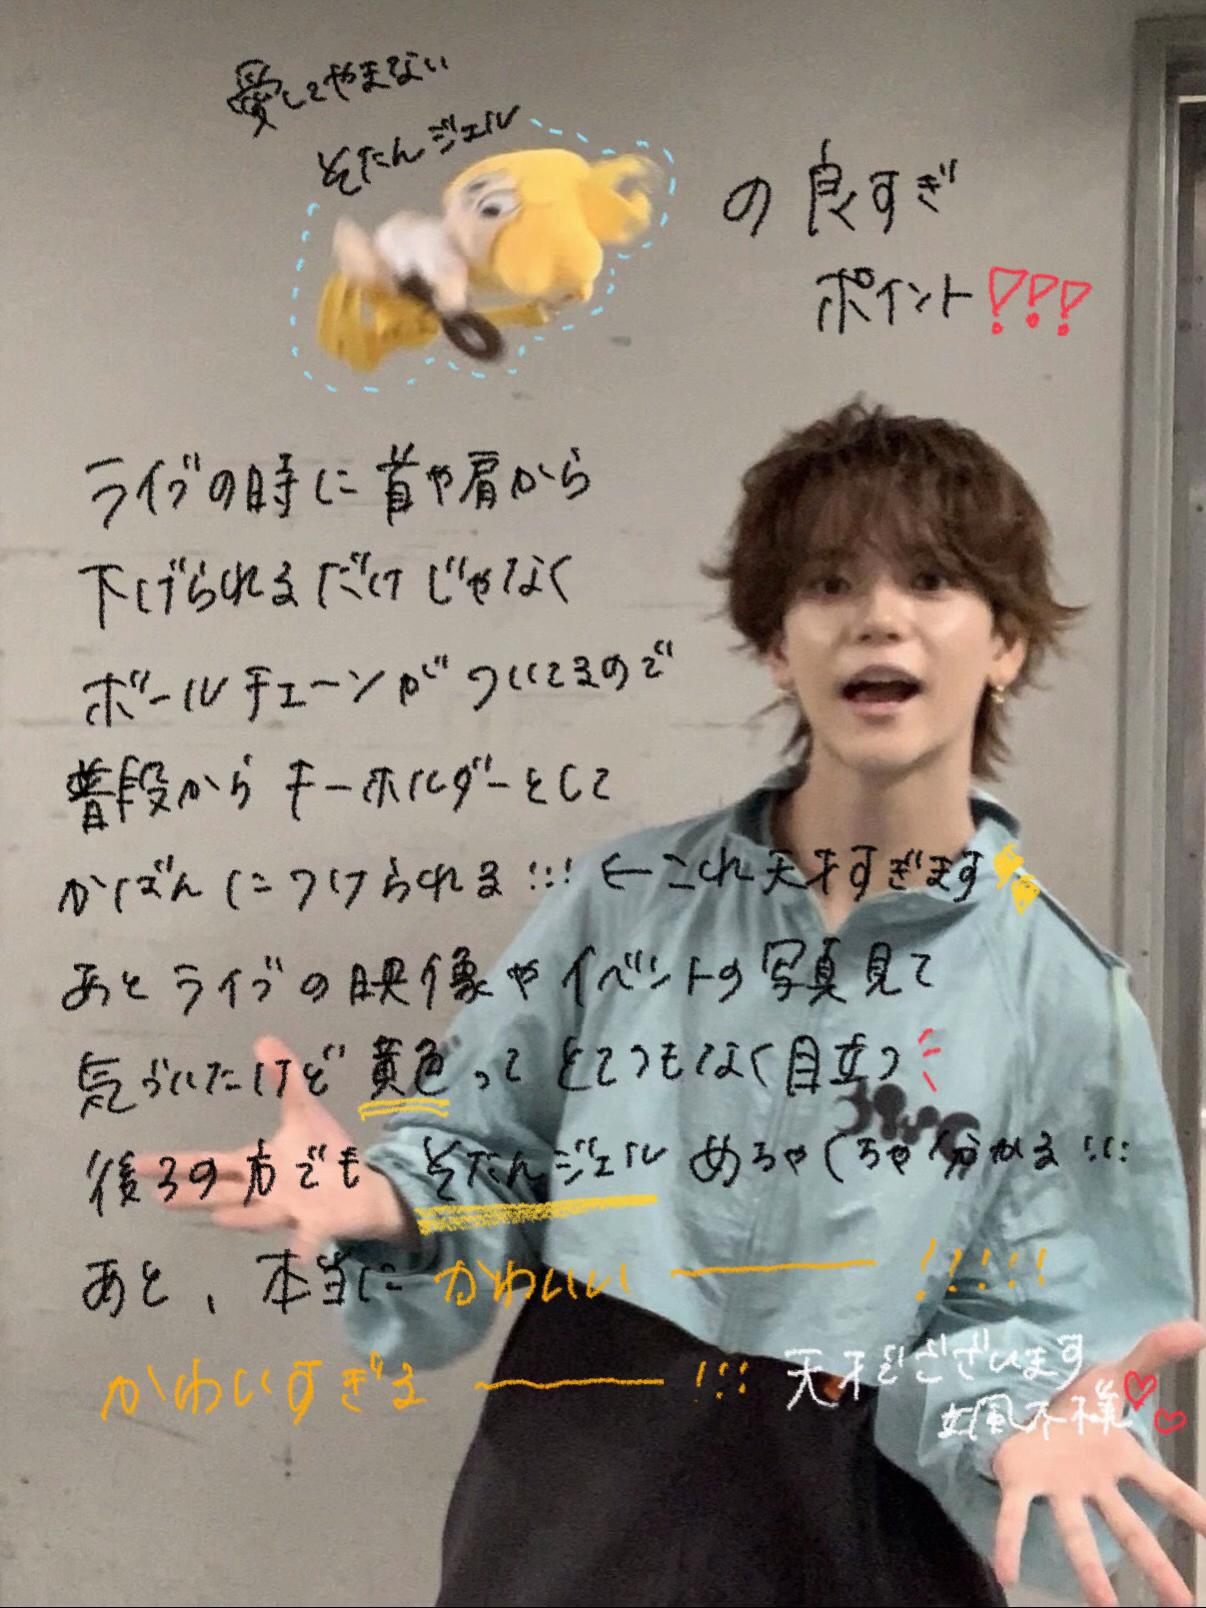 愛してやまない
そたんジェル
の良すぎ
ポイント!!!
ライブの時に首や肩から
下げられるだけじゃなく
ボールチェーンがついてるので
普段からキーホルダーとして
かばんにつけられる!!! ←これ天才すぎます
あとライブの映像やイベントの写真見て
気づいたけど黄色ってとてつもなく目立つ
後ろの方でもそたんジェルめちゃくちゃ分かる!!!
あと、本当にかわいい――!!!!!
かわいすぎる――!!! 天才でございます
颯太様♡♡